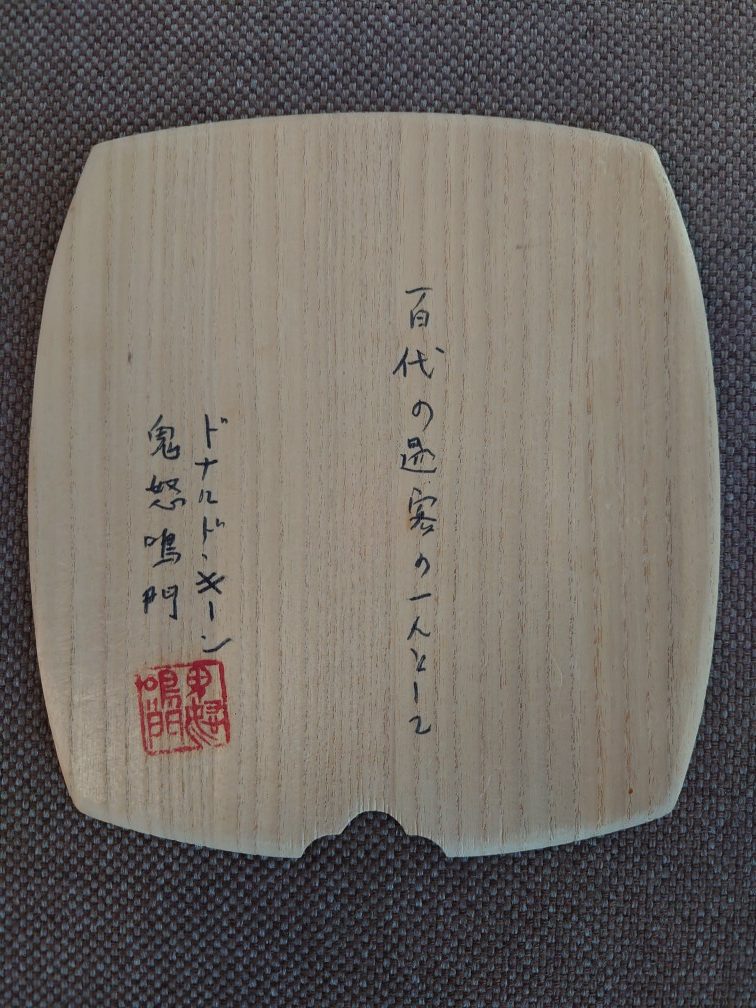 百代の過客の一人として
ドナルド・キーン
鬼怒鳴門
鳴門